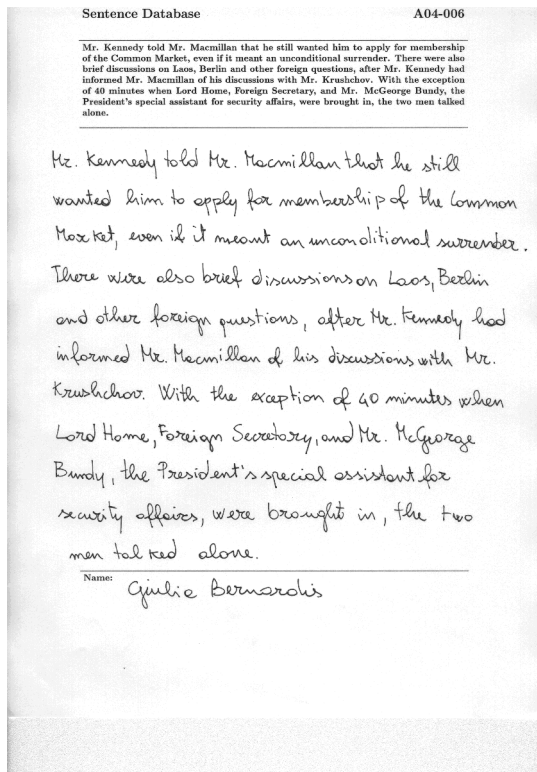 Sentence Database A04-006
Mr. Kennedy told Mr. Macmillan that he still wanted him to apply for membership
of the Common Market, even if it meant an unconditional surrender. There were also
brief discussions on Laos, Berlin and other foreign questions, after Mr. Kennedy had
informed Mr. Macmillan of his discussions with Mr. Krushchov. With the exception
of 40 minutes when Lord Home, Foreign Secretary, and Mr. McGeorge Bundy, the
President's special assistant for security affairs, were brought in, the two men talked
alone.
Mr. Kennedy told Mr. Macmillan that he still
wanted him to apply for membership of the Common
Market, even if it meant an unconditional surrender.
There were also brief discussions on Laos, Berlin
and other foreign questions, after Mr. Kennedy had
informed Mr. Macmillan of his discussions with Mr.
Krushchov. With the exception of 40 minutes when
Lord Home, Foreign Secretary, and Mr. McGeorge
Bundy, the President's special assistant for
security affairs, were brought in, the two
men talked alone.
Name:
Giulia Bernardis